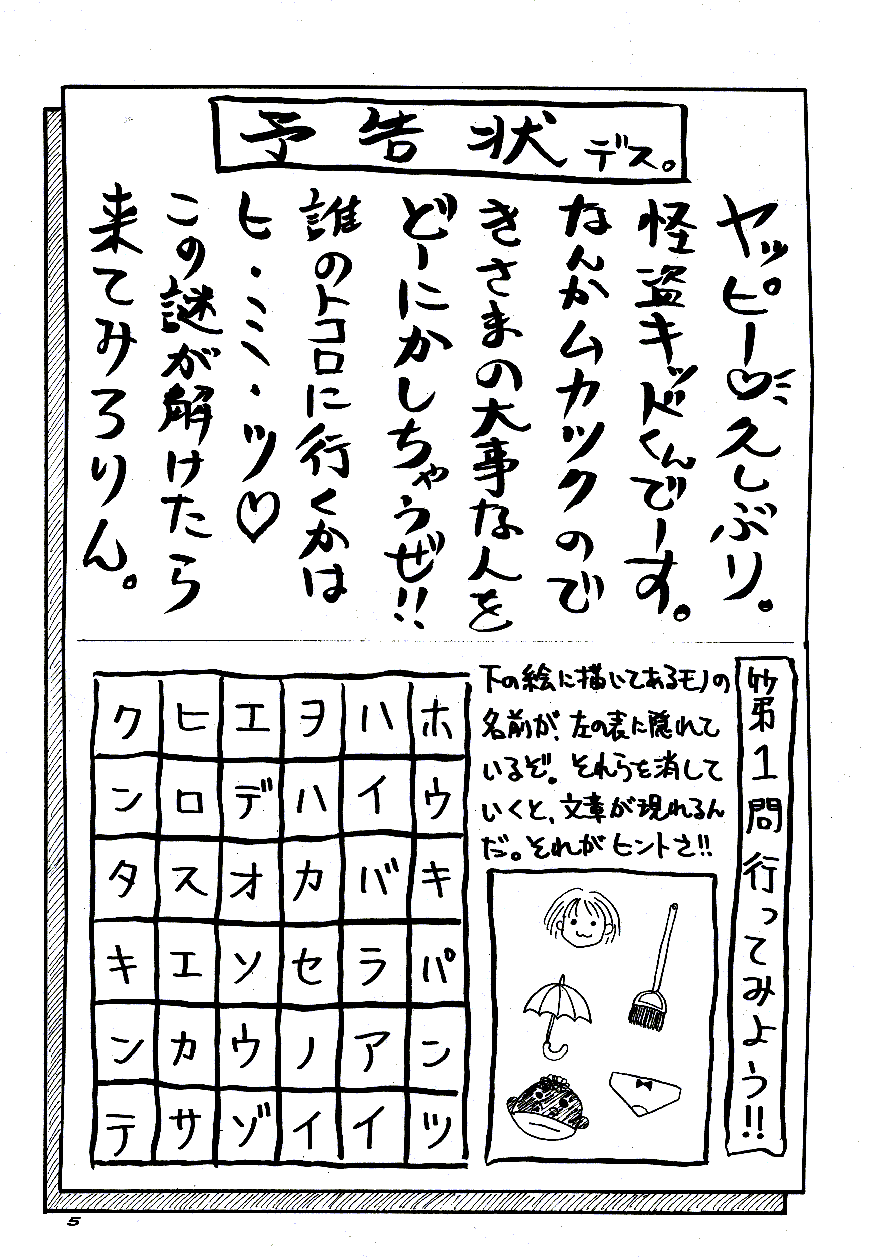 予告状デス。
ヤッピー♡久しぶり。
怪盗キッドくんでーす。
なんかムカツクので
きさまの大事な人を
どーにかしちゃうぜ!!
誰のトコロに行くかは
ヒ・ミ・ツ♡
この謎が解けたら
来てみろりん。
第1問行ってみよう!!
下の絵に描いてあるモノの
名前が、左の表に隠れて
いるぞ。それらを消して
いくと、文章が現れるん
だ。それがヒントさ!!
ク ヒ エ ヲ ハ ホ
ン ロ デ ハ イ ウ
タ ス オ カ バ キ
キ エ ソ セ ラ パ
ン カ ウ ノ ア ン
テ サ ゾ イ イ ツ
5